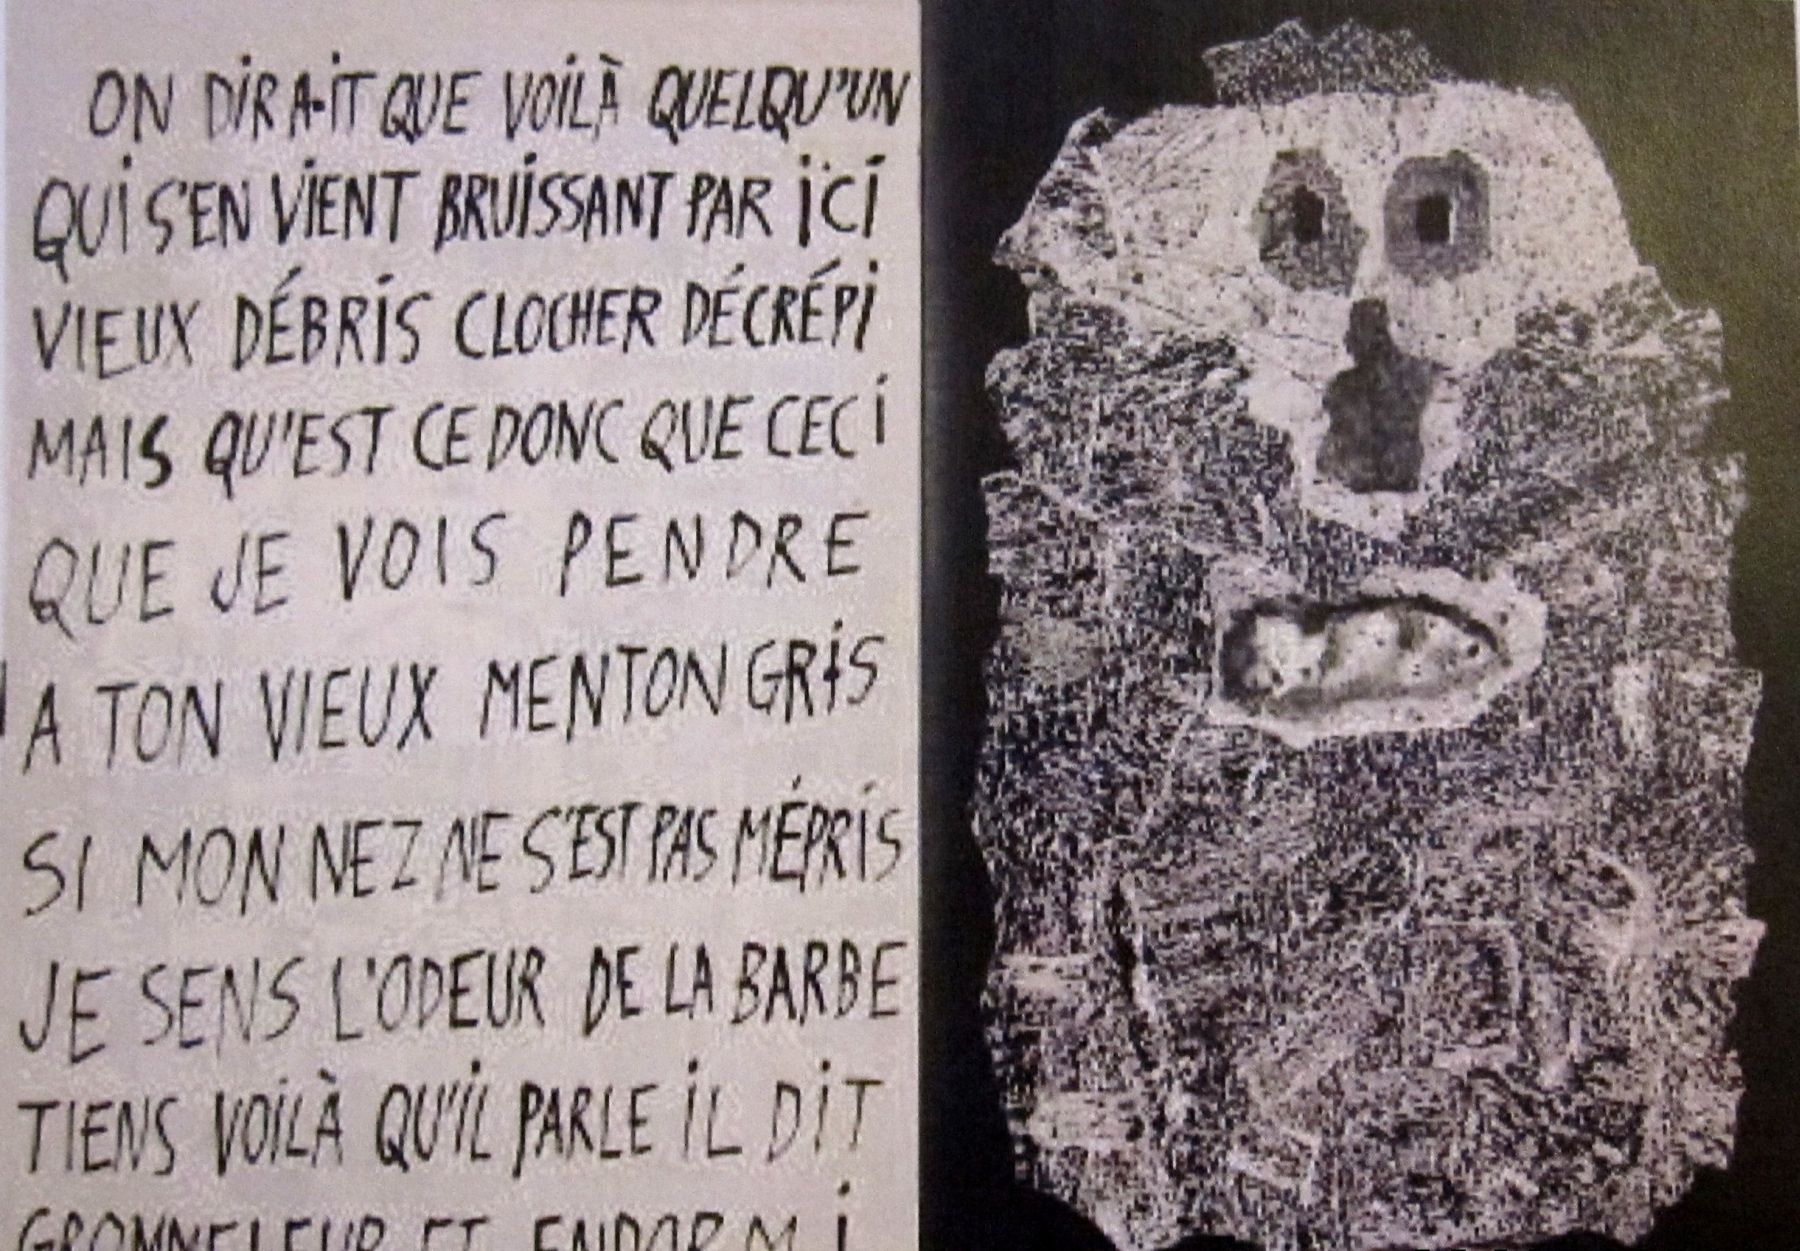 ON DIRA-IT QUE VOILÀ QUELQU'UN
QUI S'EN VIENT BRUISSANT PAR ICI
VIEUX DÉBRIS CLOCHER DÉCRÉPI
MAIS QU'EST CE DONC QUE CECI
QUE JE VOIS PENDRE
A TON VIEUX MENTON GRIS
SI MON NEZ NE S'EST PAS MÉPRIS
JE SENS L'ODEUR DE LA BARBE
TIENS VOILÀ QU'IL PARLE IL DIT
GROMMELEUR ET ENDORMI